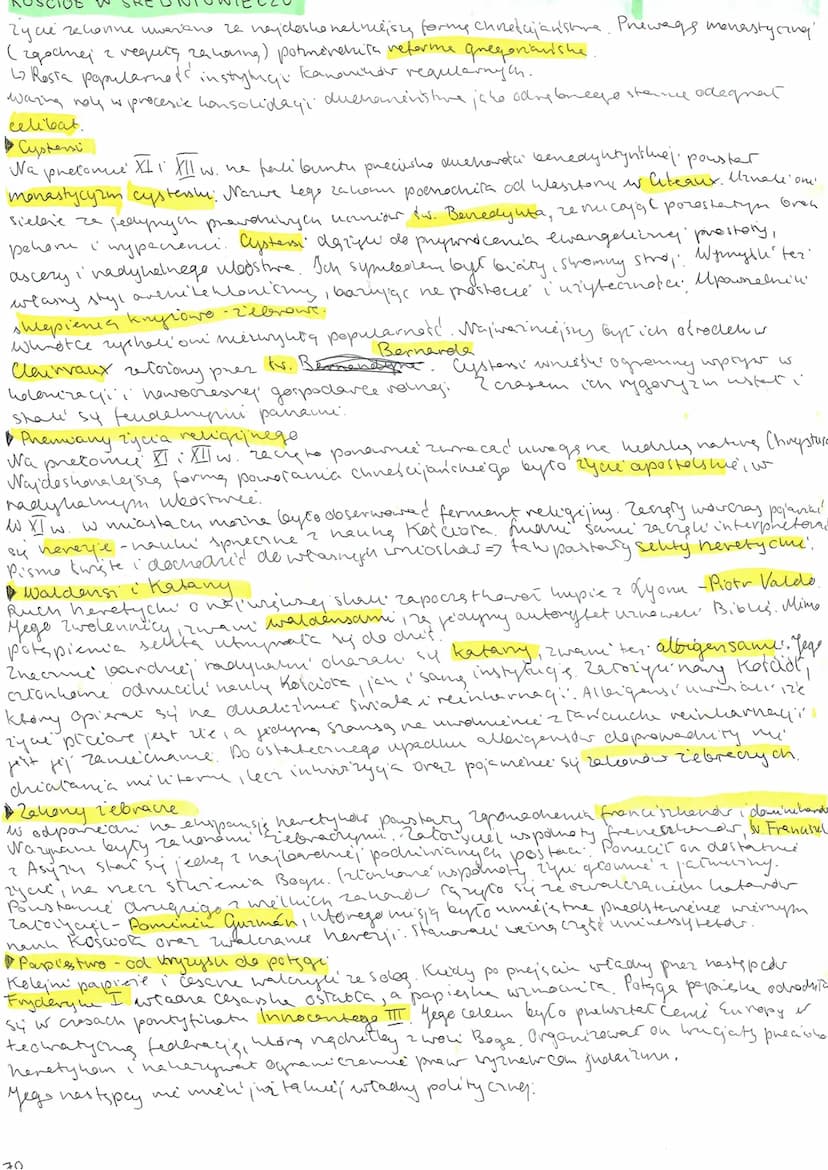 KOŚCIÓŁ W ŚREDNIOWIECZU
Życie zakonne uważano za najdoskonalszą formę chrześcijaństwa. Przewagę monastycznej
(zgodnej z regułą zakonną) potwierdziła reforma gregoriańska
↳ Rosła popularność instytucji kanoników regularnych.
Ważną rolę w procesie konsolidacji duchowieństwa jako odrębnego stanu odegrał
celibat.
▶ Cystersi
Na przełomie XI i XII w. na fali buntu przeciwko duchowości benedyktyńskiej powstał
monastycyzm cysterski. Nazwa tego zakonu pochodziła od klasztoru w Citeaux. Uznali oni
siebie za jedynych prawdziwych uczniów św. Benedykta, zarzucając pozostałym brak
pokory i wypaczenia. Cystersi dążyli do przywrócenia ewangelicznej prostoty,
ascezy i radykalnego ubóstwa. Ich symbolem był biały, skromny strój. Wymyślili też
własny styl architektoniczny, bazując na prostocie i użyteczności. Upowszechnili
sklepienia krzyżowo-żebrowe.
Wkrótce zyskali oni niezwykłą popularność. Najważniejszy był ich ośrodek w
Clairvaux założony przez św. Bernarda. Cystersi wnieśli ogromny wpływ w
kolonizacji i nowoczesnej gospodarce rolnej. Z czasem ich rygoryzm ustał i
stali się feudalnymi panami.
▶ Przemiany życia religijnego
Na przełomie XI i XII w. zaczęto ponownie zwracać uwagę na ludzką naturę Chrystusa
Najdoskonalszą formą powołania chrześcijańskiego było życie apostolskie, w
radykalnym ubóstwie.
W XI w. w miastach można było obserwować ferment religijny. Zaczęły wówczas pojawiać
się herezje - nauki sprzeczne z nauką Kościoła. Ludzie sami zaczęli interpretować
Pismo Święte i dochodzić do własnych wniosków => tak powstały sekty heretyckie.
▶ Waldensi i Katarzy
Ruch heretycki o największej skali zapoczątkował kupiec z Lyonu - Piotr Valdo.
Jego zwolennicy, zwani waldensami, za jedyny autorytet uznawali Biblię. Mimo
potępienia sekta utrzymała się do dziś.
Znacznie bardziej radykalni okazali się katarzy, zwani też albigensami. Jego
członkowie odrzucili naukę Kościoła, jak i samą instytucję. Założyli nowy Kościół,
który opierał się na dualizmie świata i reinkarnacji. Albigensi uważali, że
życie płciowe jest złe, a jedyną szansą na uwolnienie z łańcucha reinkarnacji
jest jej zaniechanie. Do ostatecznego upadku albigensów doprowadziły nie
działania militarne, lecz inkwizycja oraz pojawienie się zakonów żebraczych.
▶ Zakony żebracze
W odpowiedzi na ekspansję heretyków powstały zgromadzenia franciszkanów i dominikanów
Nazywane były zakonami żebraczymi. Założyciel wspólnoty franciszkanów, św. Franciszek
z Asyżu stał się jedną z najbardziej podziwianych postaci. Porzucił on dostatnie
życie, na rzecz służenia Bogu. Członkowie wspólnoty żyli głównie z jałmużny.
Powstanie drugiego z wielkich zakonów łączyło się ze zwalczaniem katarów
Założyciel - Dominik Guzmán, którego misją było umiejętne przedstawienie wiernym
nauk Kościoła oraz zwalczanie herezji. Stanowili ważną część uniwersytetów.
▶ Papiestwo - od kryzysu do potęgi
Kolejni papieże i cesarze walczyli ze sobą. Kiedy po przejściu władzy przez następców
Fryderyka I władza cesarska osłabła, a papieska wzmocniła. Potęga papieska odrodziła
się w czasach pontyfikatu Innocentego III. Jego celem było przekształcenie Europy w
teokratyczną federację, którą rządziłby z woli Boga. Organizował on krucjaty przeciwko
heretykom i nakazywał ograniczenie praw wyznawcom judaizmu.
Jego następcy nie mieli już takiej władzy politycznej.